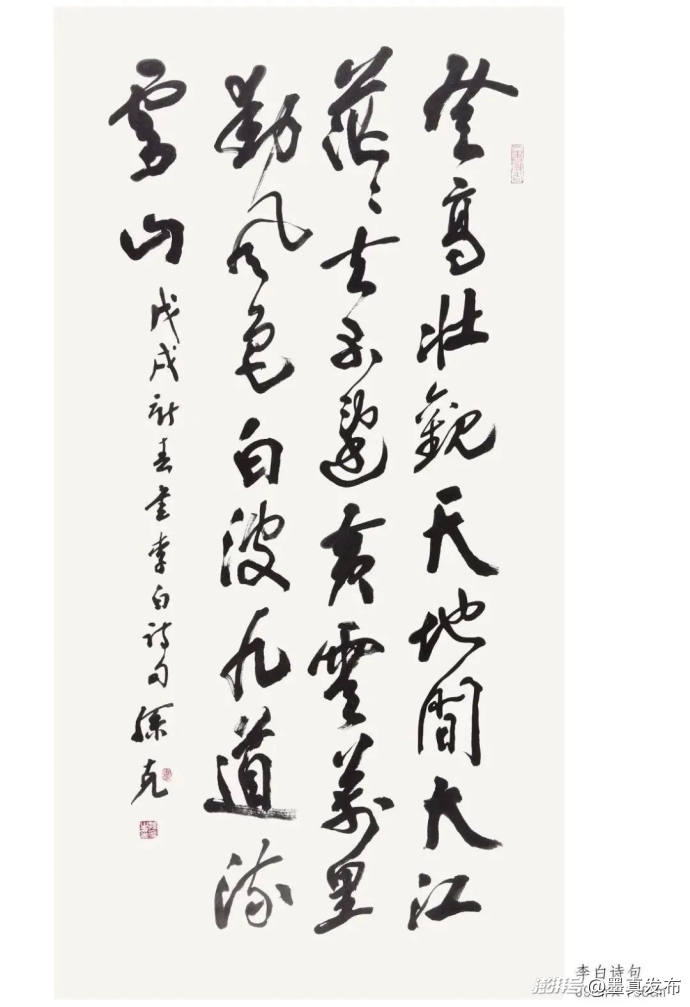 登高壮觀天地間大江
茫〻去不還黄雲萬里
動風色白波九道流
雪山
戊戌新春書李白詩句 孫克
李白诗句
澎湃号@墨真发布